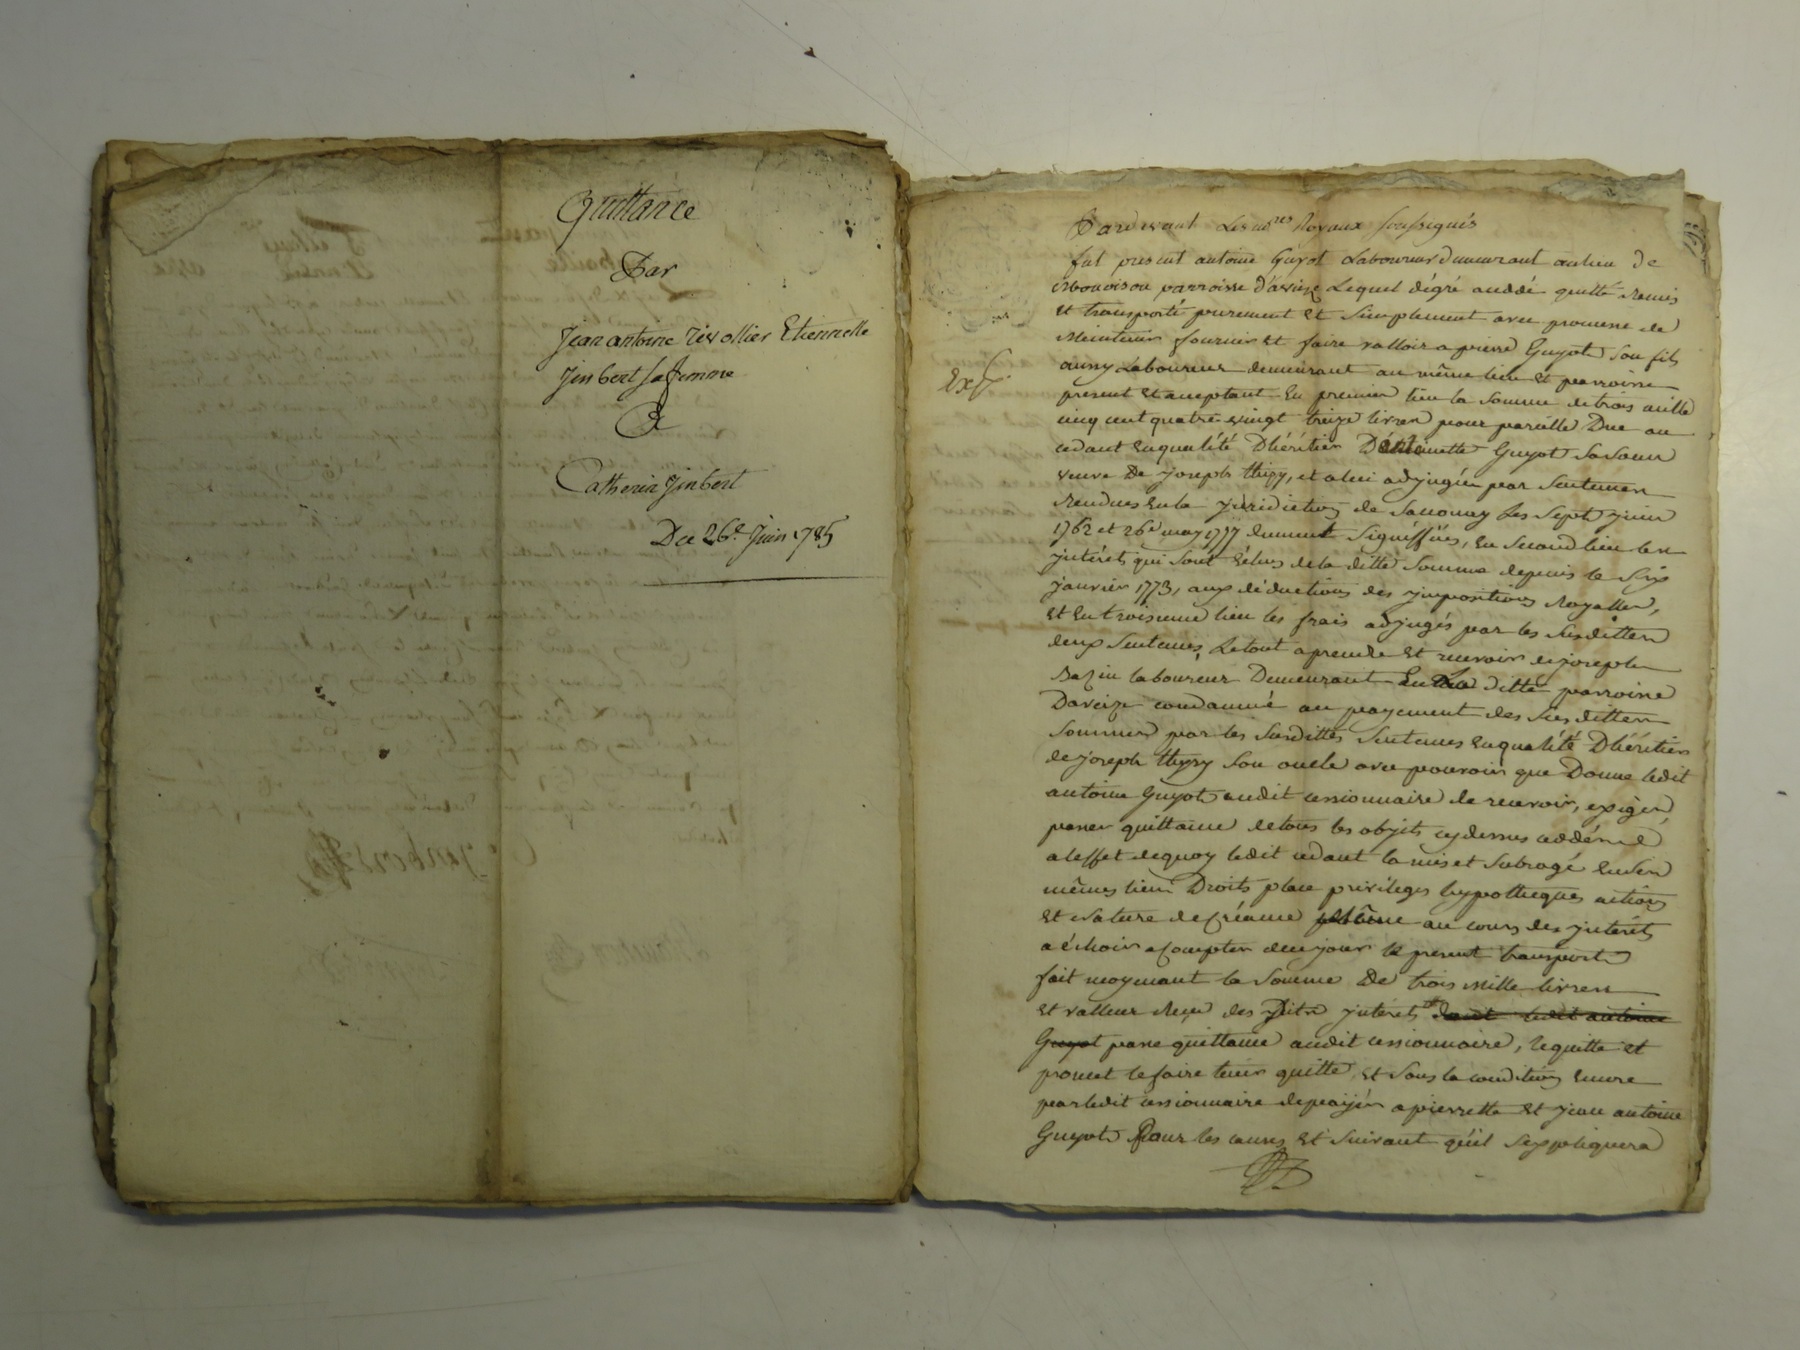 Quittance
Par
Jean antoine rivollier Etiennette
Jinbert sa femme
A
Catherin Jinbert
Du 26e Juin 1785
Pardevant Les nres Royaux soussignés
fut present antoine Guyot Laboureur demeurant au lieu de
parroisse d'aveize Lequel dégré a ceddé quitté Remis
et transporté purement et simplement avec promesse de
Meintenir fournir et faire valloir a pierre Guyot son fils
aussy Laboureur demeurant au même lieu et parroisse
Exp
present et acceptant En premier lieu la somme de trois mille
cinq cent quatre vingt treize livres pour pareille Due au
cedant En qualité D'héritier Guyot sa sœur
veuve De joseph thizy, et a lui adjugée par sentences
Rendues En la Juridiction de les sept juin
1762 et 26e may 1777 dument signiffiées, En second lieu les
jnteréts qui sont Echus de la ditte somme depuis le six
janvier 1773, aux déductions des jmpositions Royalles,
Et En troisieme lieu les frais adjugés par les susdittes
deux sentences, Le tout a prendre Et recevoir de joseph
Bazin laboureur Demeurant En la ditte parroisse
Daveize condamné au payement des sus dittes
sommes par les susdittes sentences En qualité D'héritier
de joseph thyzy son oncle avec pouvoir que Donne ledit
antoine Guyot audit cessionnaire de recevoir, exiger,
passer quittance de tous les objets cy dessus ceddés
a leffet de quoy ledit cedant la mis et subrogé En ses
mêmes lieu Droits place privileges hypotheques actions
Et nature de créance même au cours des jnteréts
a échoir a compter de ce jour le present transport
fait moyenant la somme De trois mille livres
Et valleur Reçue des dits jnteréts dont ledit antoine
Guyot passe quittance audit cessionnaire, le quitte et
promet le faire tenir quitte, Et sous la condition Encore
par ledit cessionnaire de payer a pierrette Et jean antoine
Guyot Pour les causes Et suivant qu'il sexpliquera